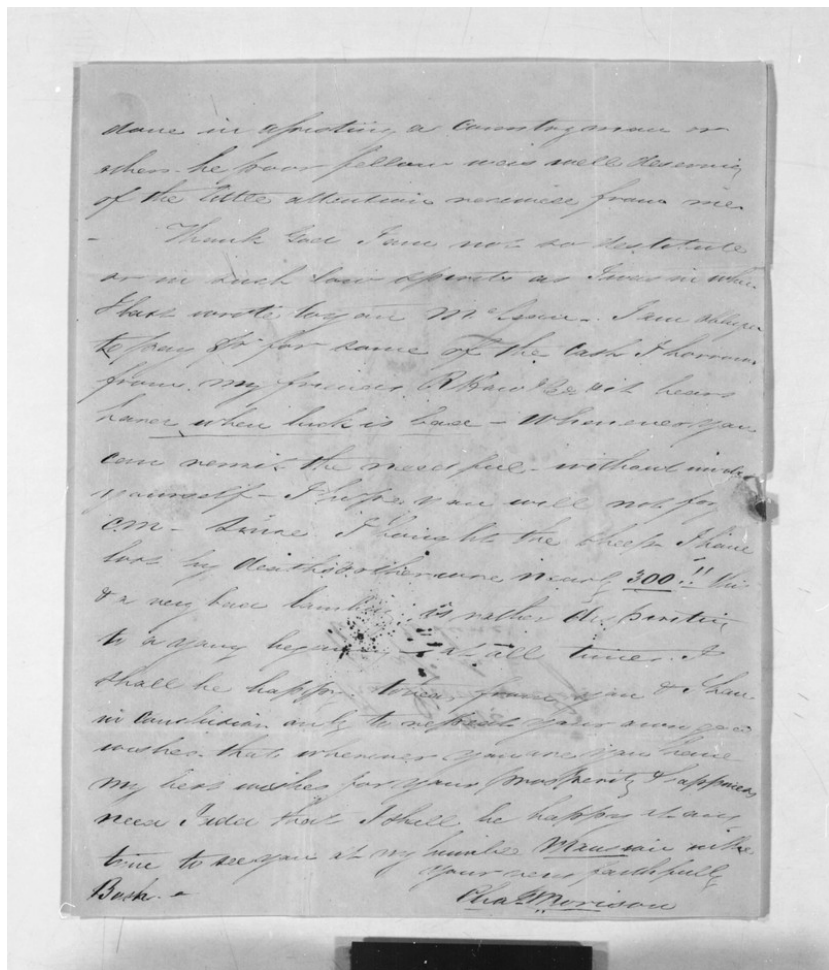 done in assisting a Countryman or
when he poor fellow was well deserving
of the little attention received from me
- Thank God I am not so destitute
or in such low spirits as I was in when
I last wrote to you Mr I am
to pay for some of the Cash I borrow
from my friends R hears
hard when luck is bad - Whenever you
can remit the needful - without
yourself - I hope you will not for
Since I bought the sheep I have
lost by deaths & otherwise nearly 300!! this
& a very bad lambing is rather dispiriting
to a young beginner at all times. I
shall be happy to hear from you & I have
in conclusion only to repeat your own good
wishes that wherever you are you have
my best wishes for your prosperity & happiness
need I add that I shall be happy at any
time to see you at my humble Mansion in the
Your very faithfully
Bush. -
Chas. Morison